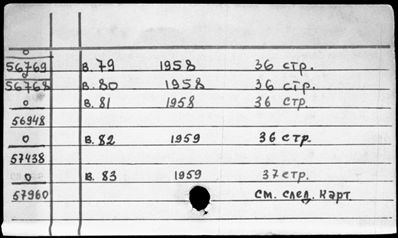 0
56769 в. 79 1958 36 стр.
0
56768 в. 80 1958 36 стр.
0 в. 81 1958 36 стр.
56948
0 в. 82 1959 36 стр.
57438
0 в. 83 1959 37 стр.
57960 см. след. карт.